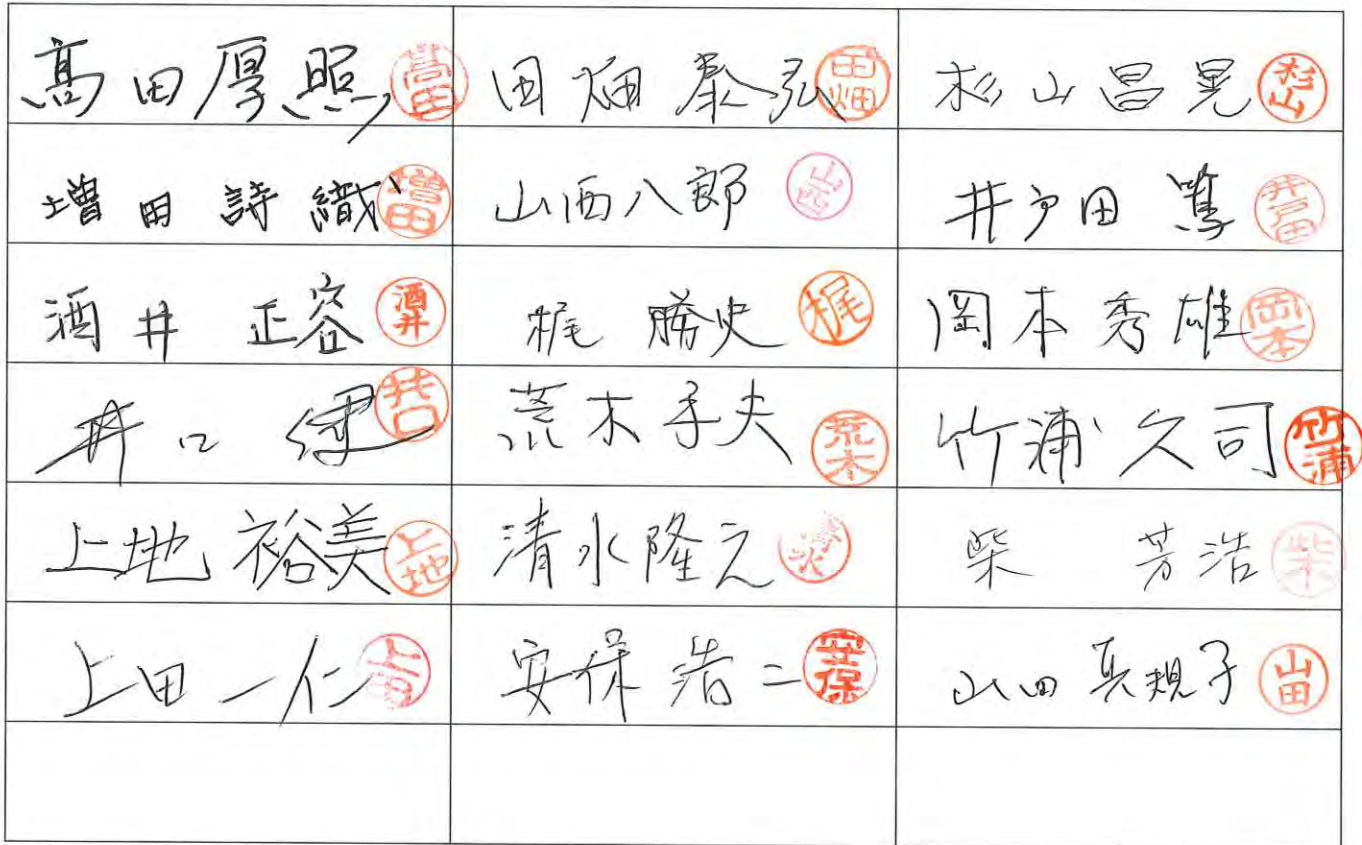 髙田厚照 髙田 田畑泰弘 田畑 杉山昌晃 杉山
増田詩織 増田 山西八郎 山西 井戸田篤 井戸田
酒井正容 酒井 梶勝史 梶 岡本秀雄 岡本
井口健 井口 荒木孝夫 荒木 竹浦久司 竹浦
上地裕美 上地 清水隆之 清水 柴芳浩 柴
上田一仁 上田 安保浩二 安保 山田真規子 山田